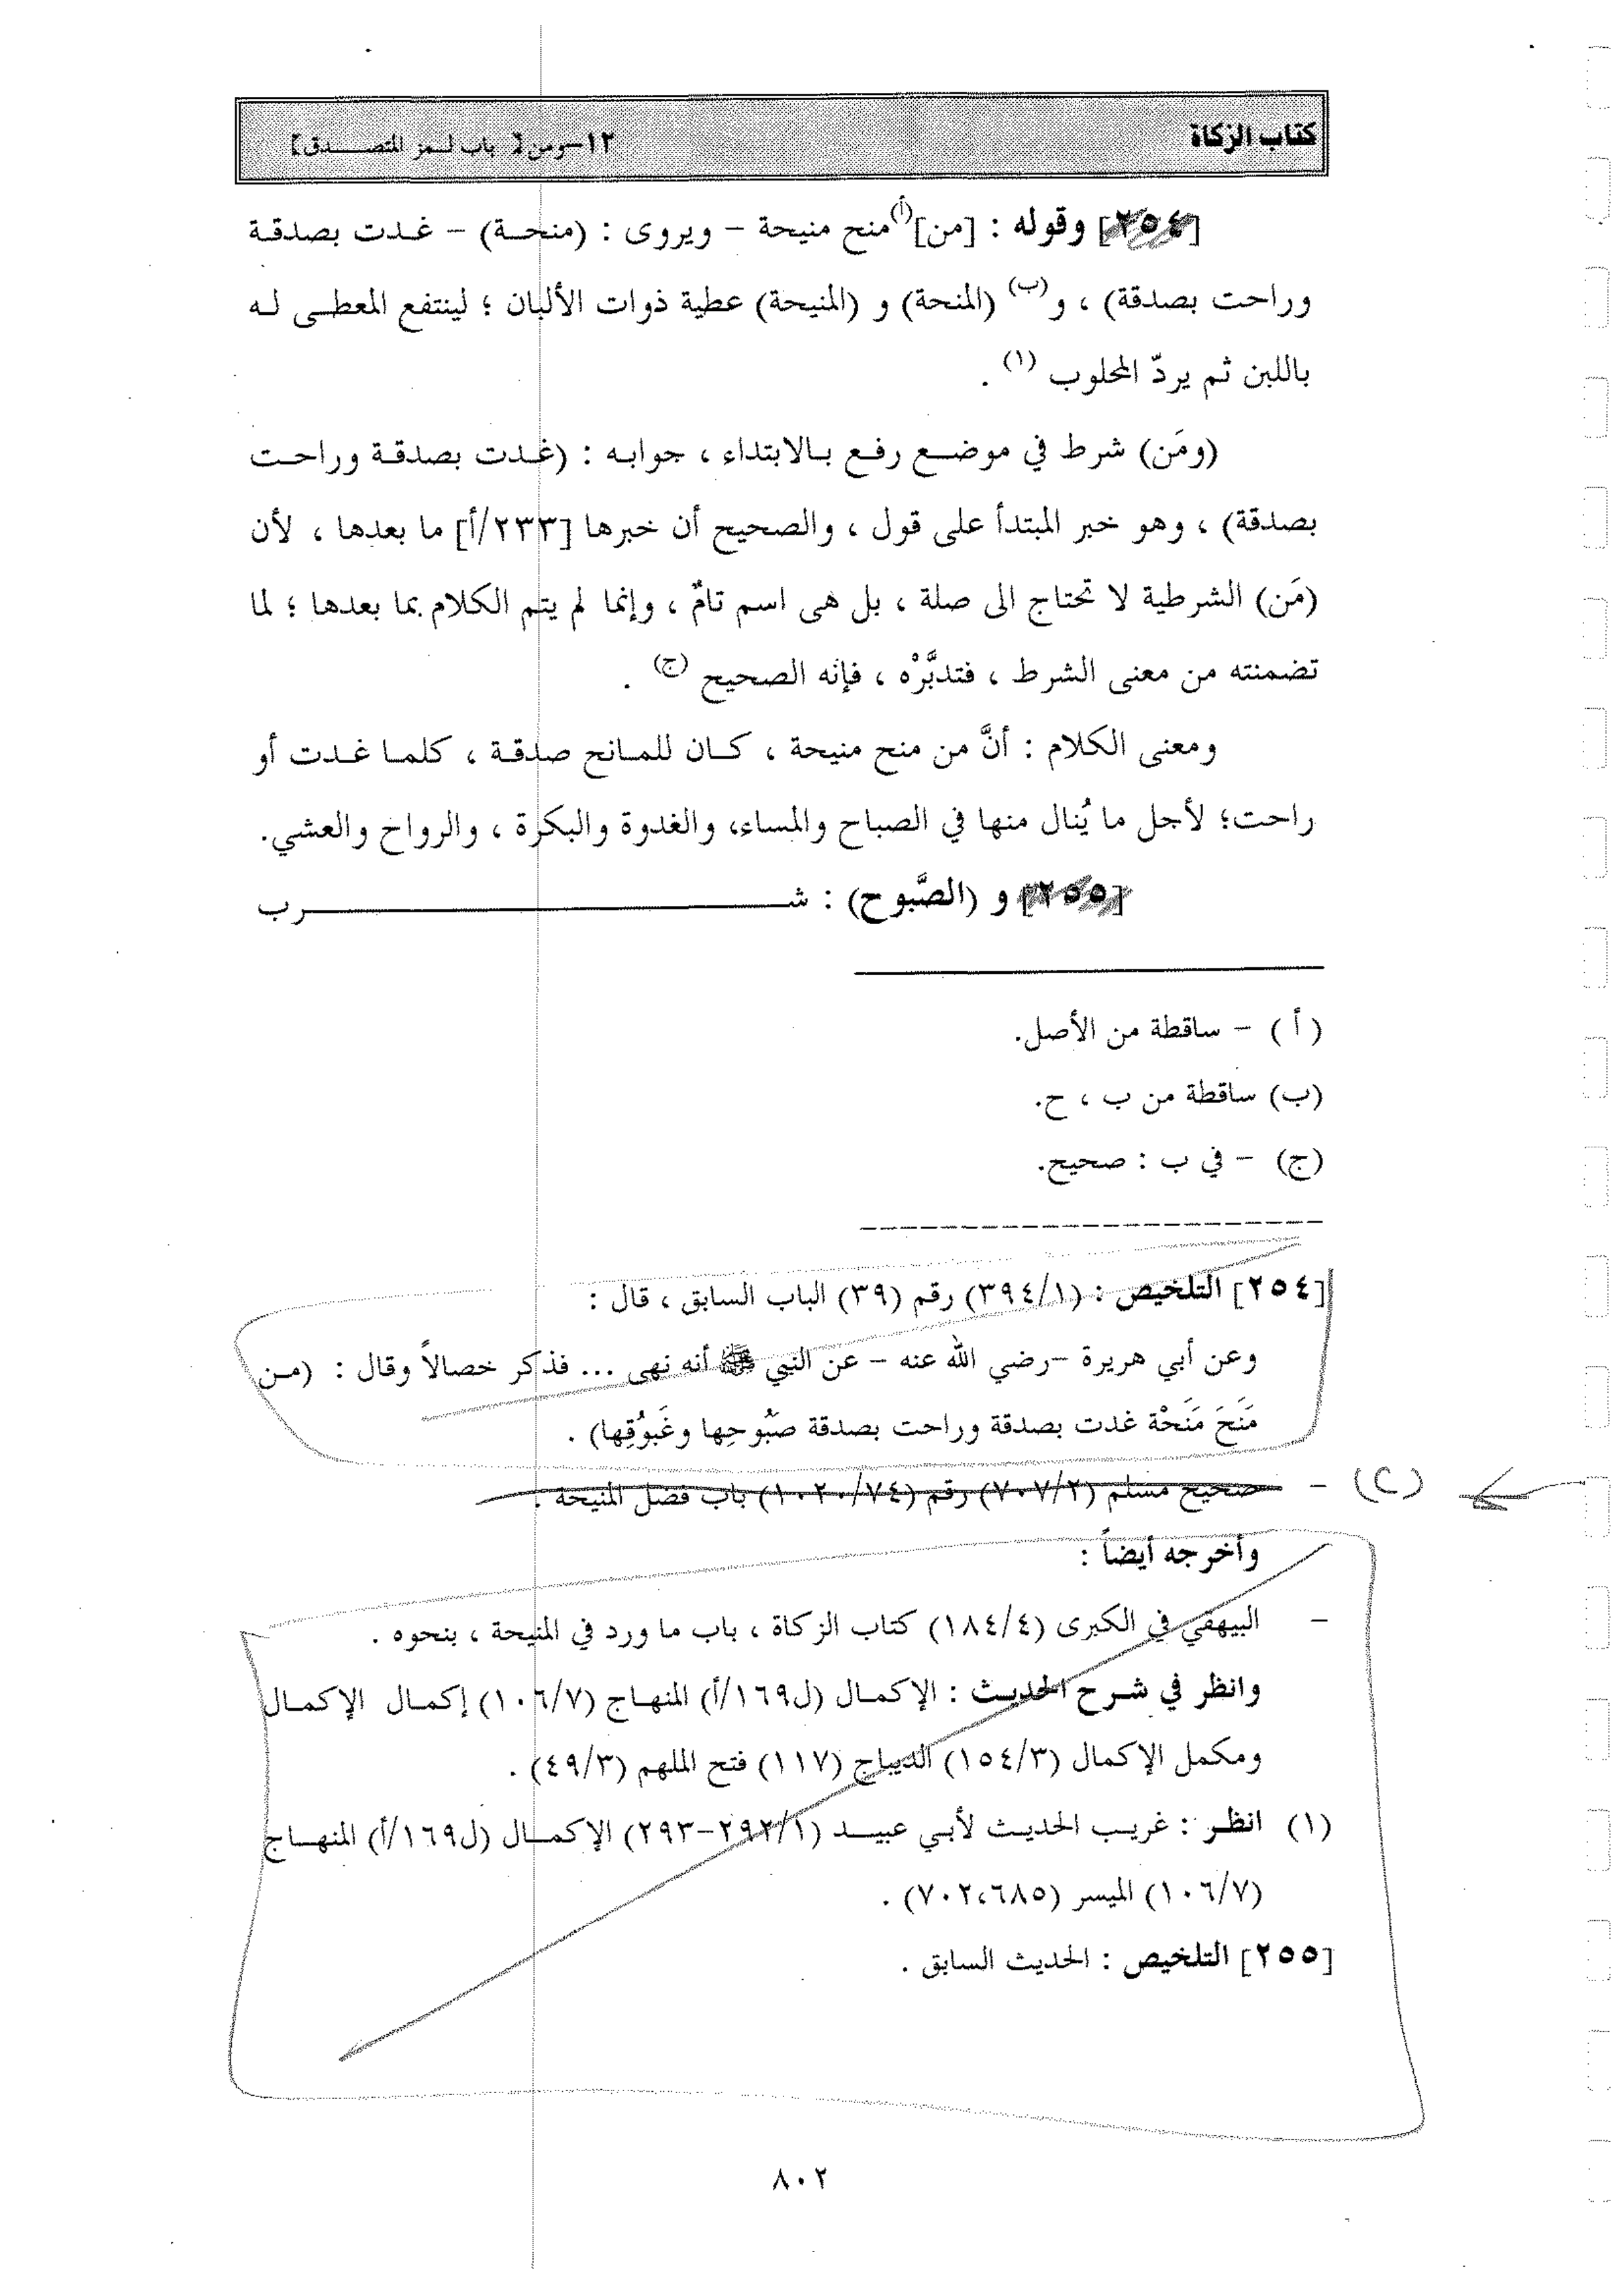 كتاب الزكاة
١٢-ومن [ باب لـمز المتصـــدق ]
[٢٥٤] وقوله : [من](أ) منح منيحة – ويروى : (منحـة) – غـدت بصدقـة
وراحت بصدقة) ، و(ب) (المنحة) و (المنيحة) عطية ذوات الألبان ؛ لينتفع المعطـى لـه
باللبن ثم يردّ المحلوب (١) .
(ومَن) شرط في موضـع رفـع بـالابتداء ، جوابـه : (غـدت بصدقـة وراحـت
بصدقة) ، وهو خبر المبتدأ على قول ، والصحيح أن خبرها [٢٣٣/أ] ما بعدها ، لأن
(مَن) الشرطية لا تحتاج الى صلة ، بل هى اسم تامٌ ، وإنما لم يتم الكلام بما بعدها ؛ لما
تضمنته من معنى الشرط ، فتدبَّرْه ، فإنه الصحيح (ج) .
ومعنى الكلام : أنَّ من منح منيحة ، كـان للمـانح صدقـة ، كلمـا غـدت أو
راحت؛ لأجل ما يُنال منها في الصباح والمساء، والغدوة والبكرة ، والرواح والعشي.
[٢٥٥] و (الصَّبوح) : شـــــــرب
( أ ) – ساقطة من الأصل.
(ب) ساقطة من ب ، ح.
(ج) – في ب : صحيح.
[٢٥٤] التلخيص : (٣٩٤/١) رقم (٣٩) الباب السابق ، قال :
وعن أبي هريرة –رضي الله عنه – عن النبي ﷺ أنه نهى ... فذكر خصالاً وقال : (مـن
مَنَحَ مَنَحْة غدت بصدقة وراحت بصدقة صَبُوحِها وغَبوُقِها) .
– صحيح مسلم (٧٠٧/٢) رقم (١٠٢٠/٧٤) باب فضل المنيحة .
وأخرجه أيضاً :
– البيهقي في الكبرى (١٨٤/٤) كتاب الزكاة ، باب ما ورد في المنيحة ، بنحوه .
وانظر في شـرح الحديـث : الإكمـال (ل١٦٩/أ) المنهـاج (١٠٦/٧) إكمـال الإكمـال
ومكمل الإكمال (١٥٤/٣) الديباج (١١٧) فتح الملهم (٤٩/٣) .
(١) انظـر : غريـب الحديـث لأبـي عبيــد (٢٩٢/١-٢٩٣) الإكمـال (ل١٦٩/أ) المنهـاج
(١٠٦/٧) الميسر (٧٠٢،٦٨٥) .
[٢٥٥] التلخيص : الحديث السابق .
٨٠٢